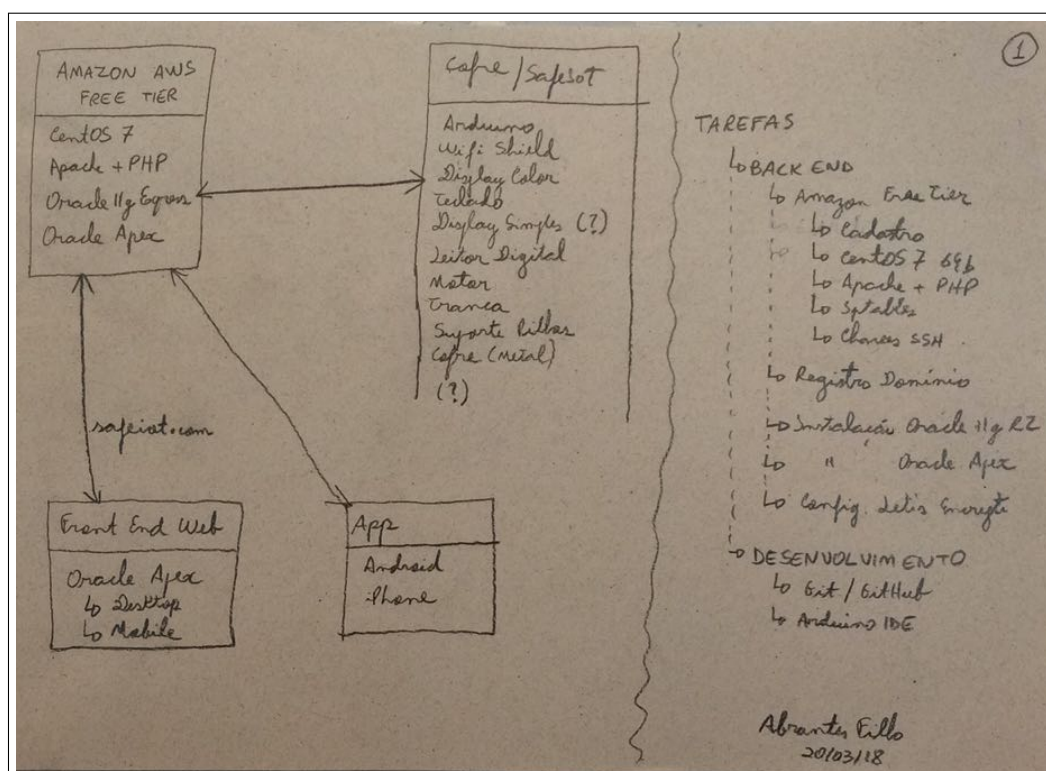 1
AMAZON AWS
FREE TIER
CentOS 7
Apache + PHP
Oracle 11g Express
Oracle Apex
Cofre / SafeIoT
Arduino
Wifi Shield
Display Color
Teclado
Display Simples (?)
Leitor Digital
Motor
Tranca
Suporte Pilhas
Cofre (Metal)
(?)
safeiot.com
Front End Web
Oracle Apex
↳ Desktop
↳ Mobile
App
Android
iPhone
TAREFAS
↳ BACK END
↳ Amazon Free Tier
↳ Cadastro
↳ CentOS 7 64b
↳ Apache + PHP
↳ Iptables
↳ Chaves SSH
↳ Registro Domínio
↳ Instalação Oracle 11g R2
↳ " Oracle Apex
↳ Config. Let's Encrypt
↳ DESENVOLVIMENTO
↳ Git / GitHub
↳ Arduino IDE
Abrantes Filho
20/03/18